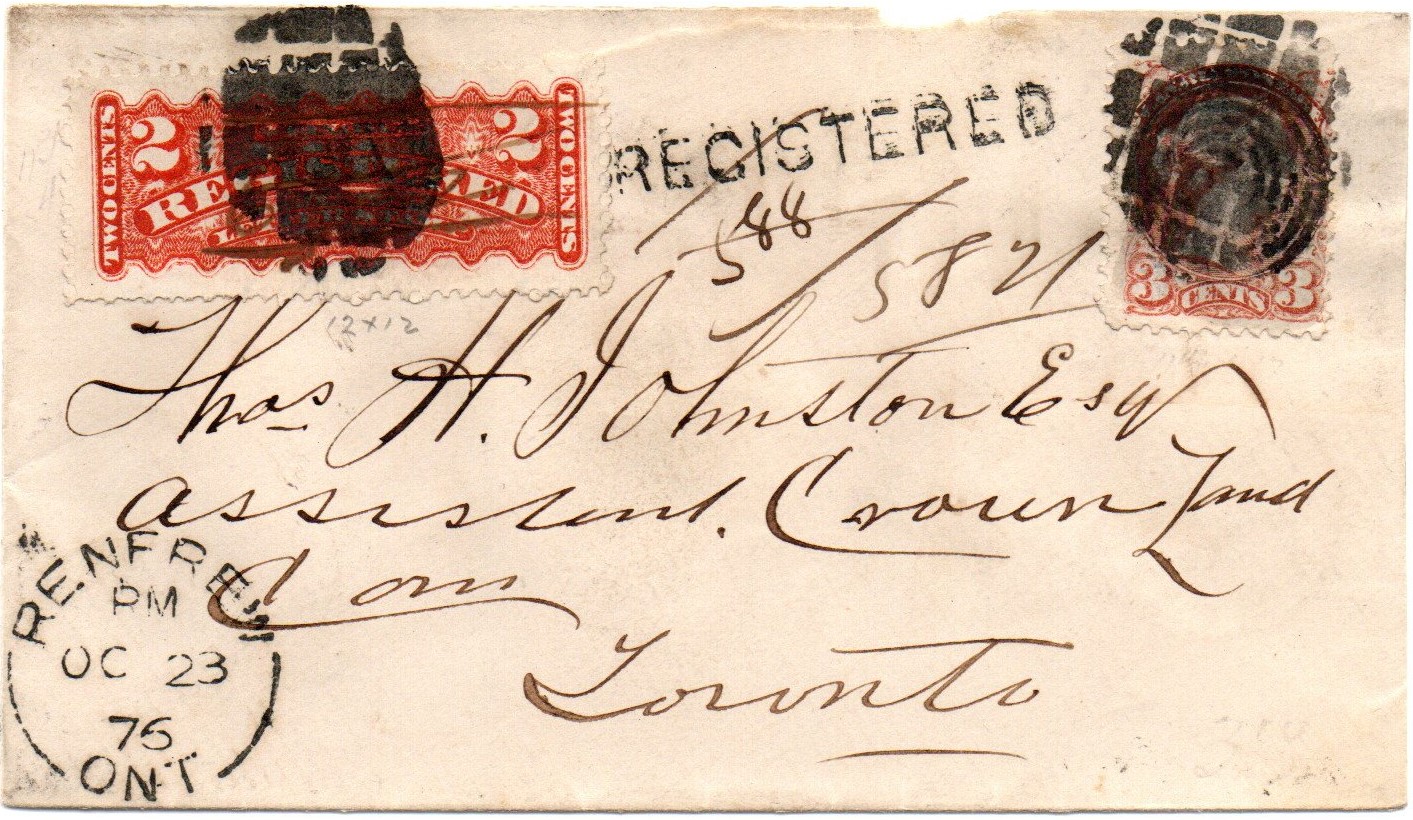 TWO CENTS 2 2 TWO CENTS
REGISTERED
3 CENTS 3
588
5821
12x12
Thos H. Johnston Esq
Assistant. Crown Land
Com
Toronto
RENFREW
PM
OC 23
76
ONT